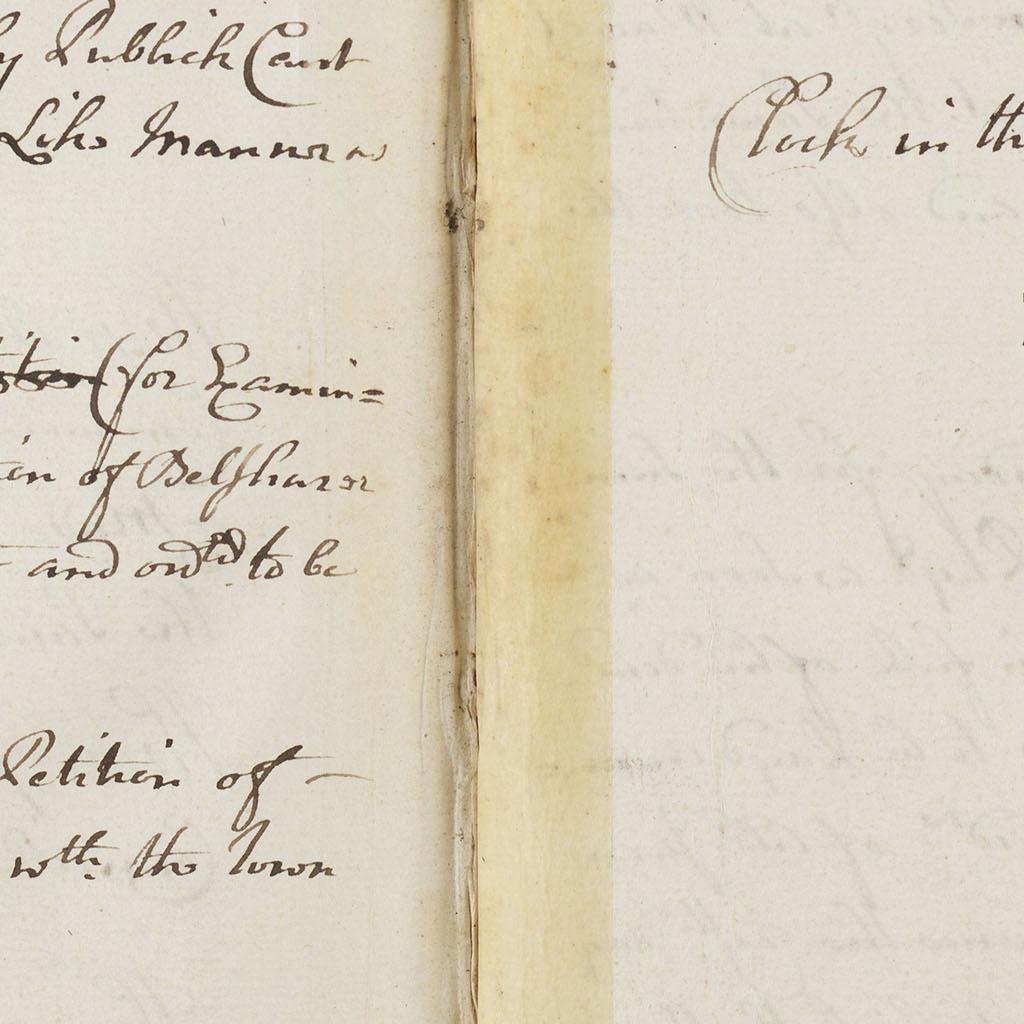 y Publick Cant
Like Manner as
(for Examin=
of Belsharer
and ord'd to be
Petition of —
wth. the Town
Clock in th